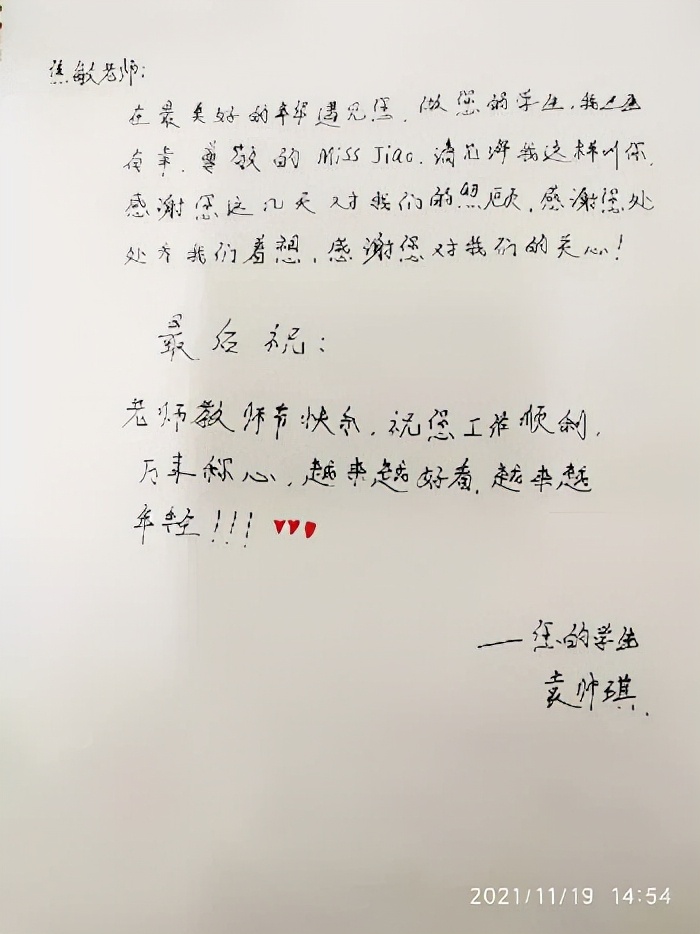 焦敏老师:
在最美好的年级遇见您,做您的学生,我之至
有幸,尊敬的 Miss Jiao,请允许我这样叫你,
感谢您这几天对我们的照顾,感谢您处
处为我们着想,感谢您对我们的关心!
最后祝:
老师教师节快乐,祝您工作顺利,
万事称心,越来越好看,越来越
年轻!!!
——您的学生
袁帅琪.
2021/11/19 14:54